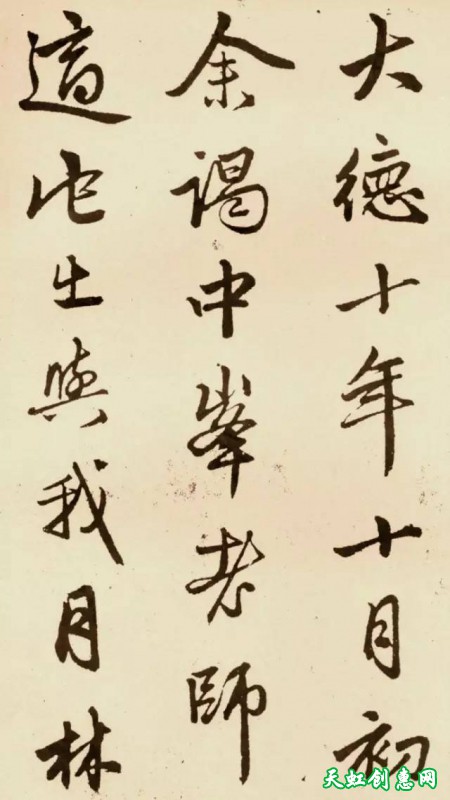 大德十年十月初
余謁中峯老師
適佗出與我月林
天虹创惠网